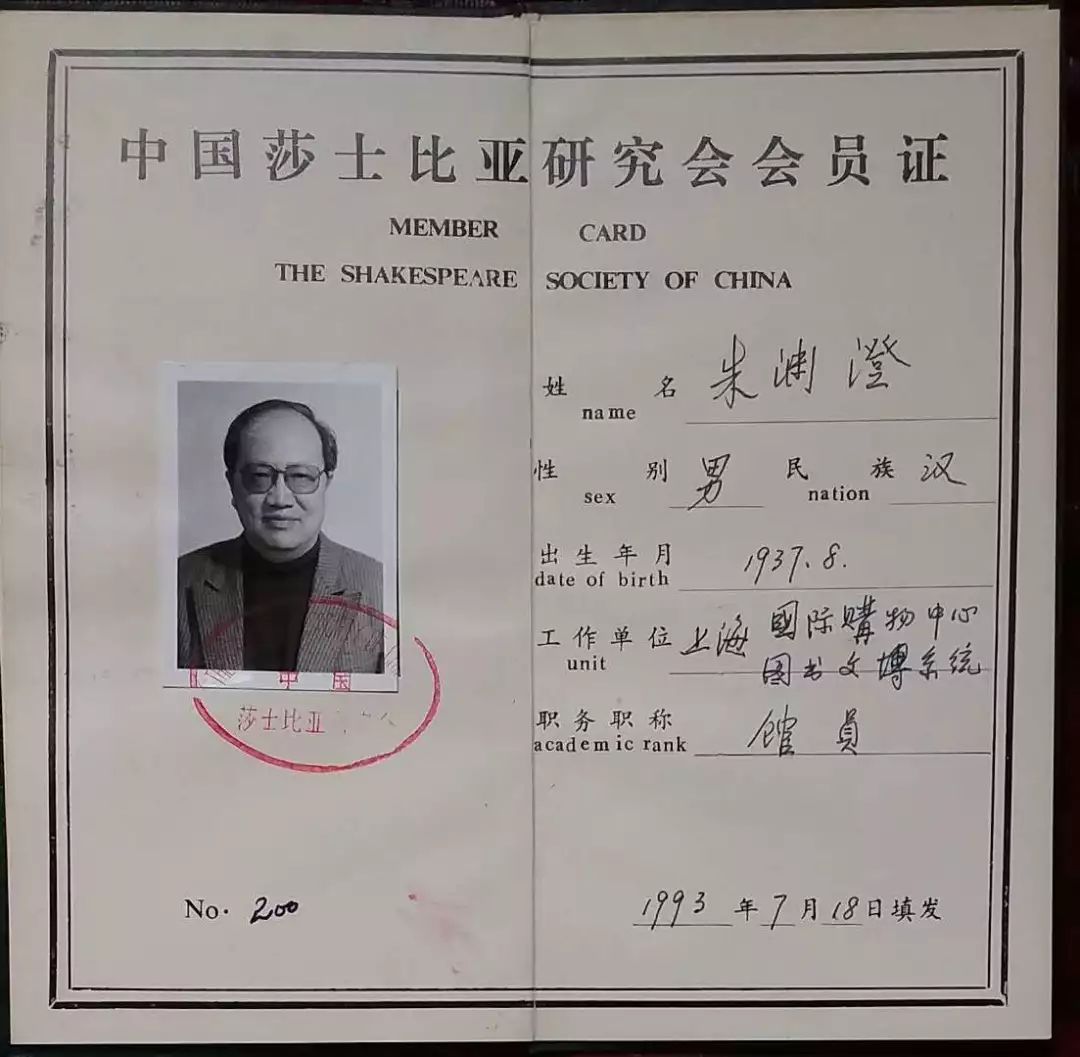 中国莎士比亚研究会会员证
MEMBER CARD
THE SHAKESPEARE SOCIETY OF CHINA
姓名 朱渊澄
name
性别 男 民族 汉
sex nation
出生年月 1937.8.
date of birth
工作单位 上海國际購物中心
unit 图书文博系统
职务职称 馆員
academic rank
中国
莎士比亚
No. 200
1993年7月18日填发